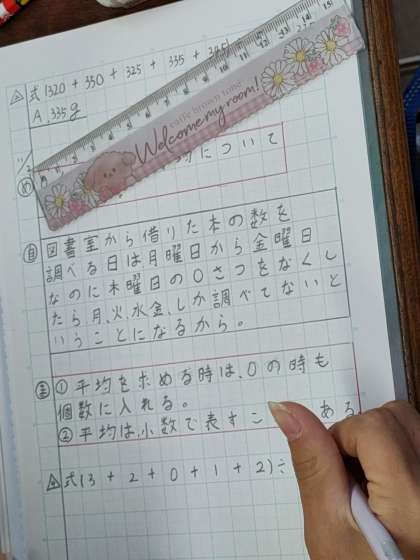 式(320 + 330 + 325 + 335 + 3
A. 335g
coffee brown time
Welcome my room!
め
について
自 図書室から借りた本の数を
調べる日は月曜日から金曜日
なのに木曜日の0さつをなくし
たら月、火、水、金、しか調べてないと
いうことになるから。
ま ① 平均を求める時は、0の時も
個数に入れる。
② 平均は、小数で表すこ ある
式(3 + 2 + 0 + 1 + 2) ÷